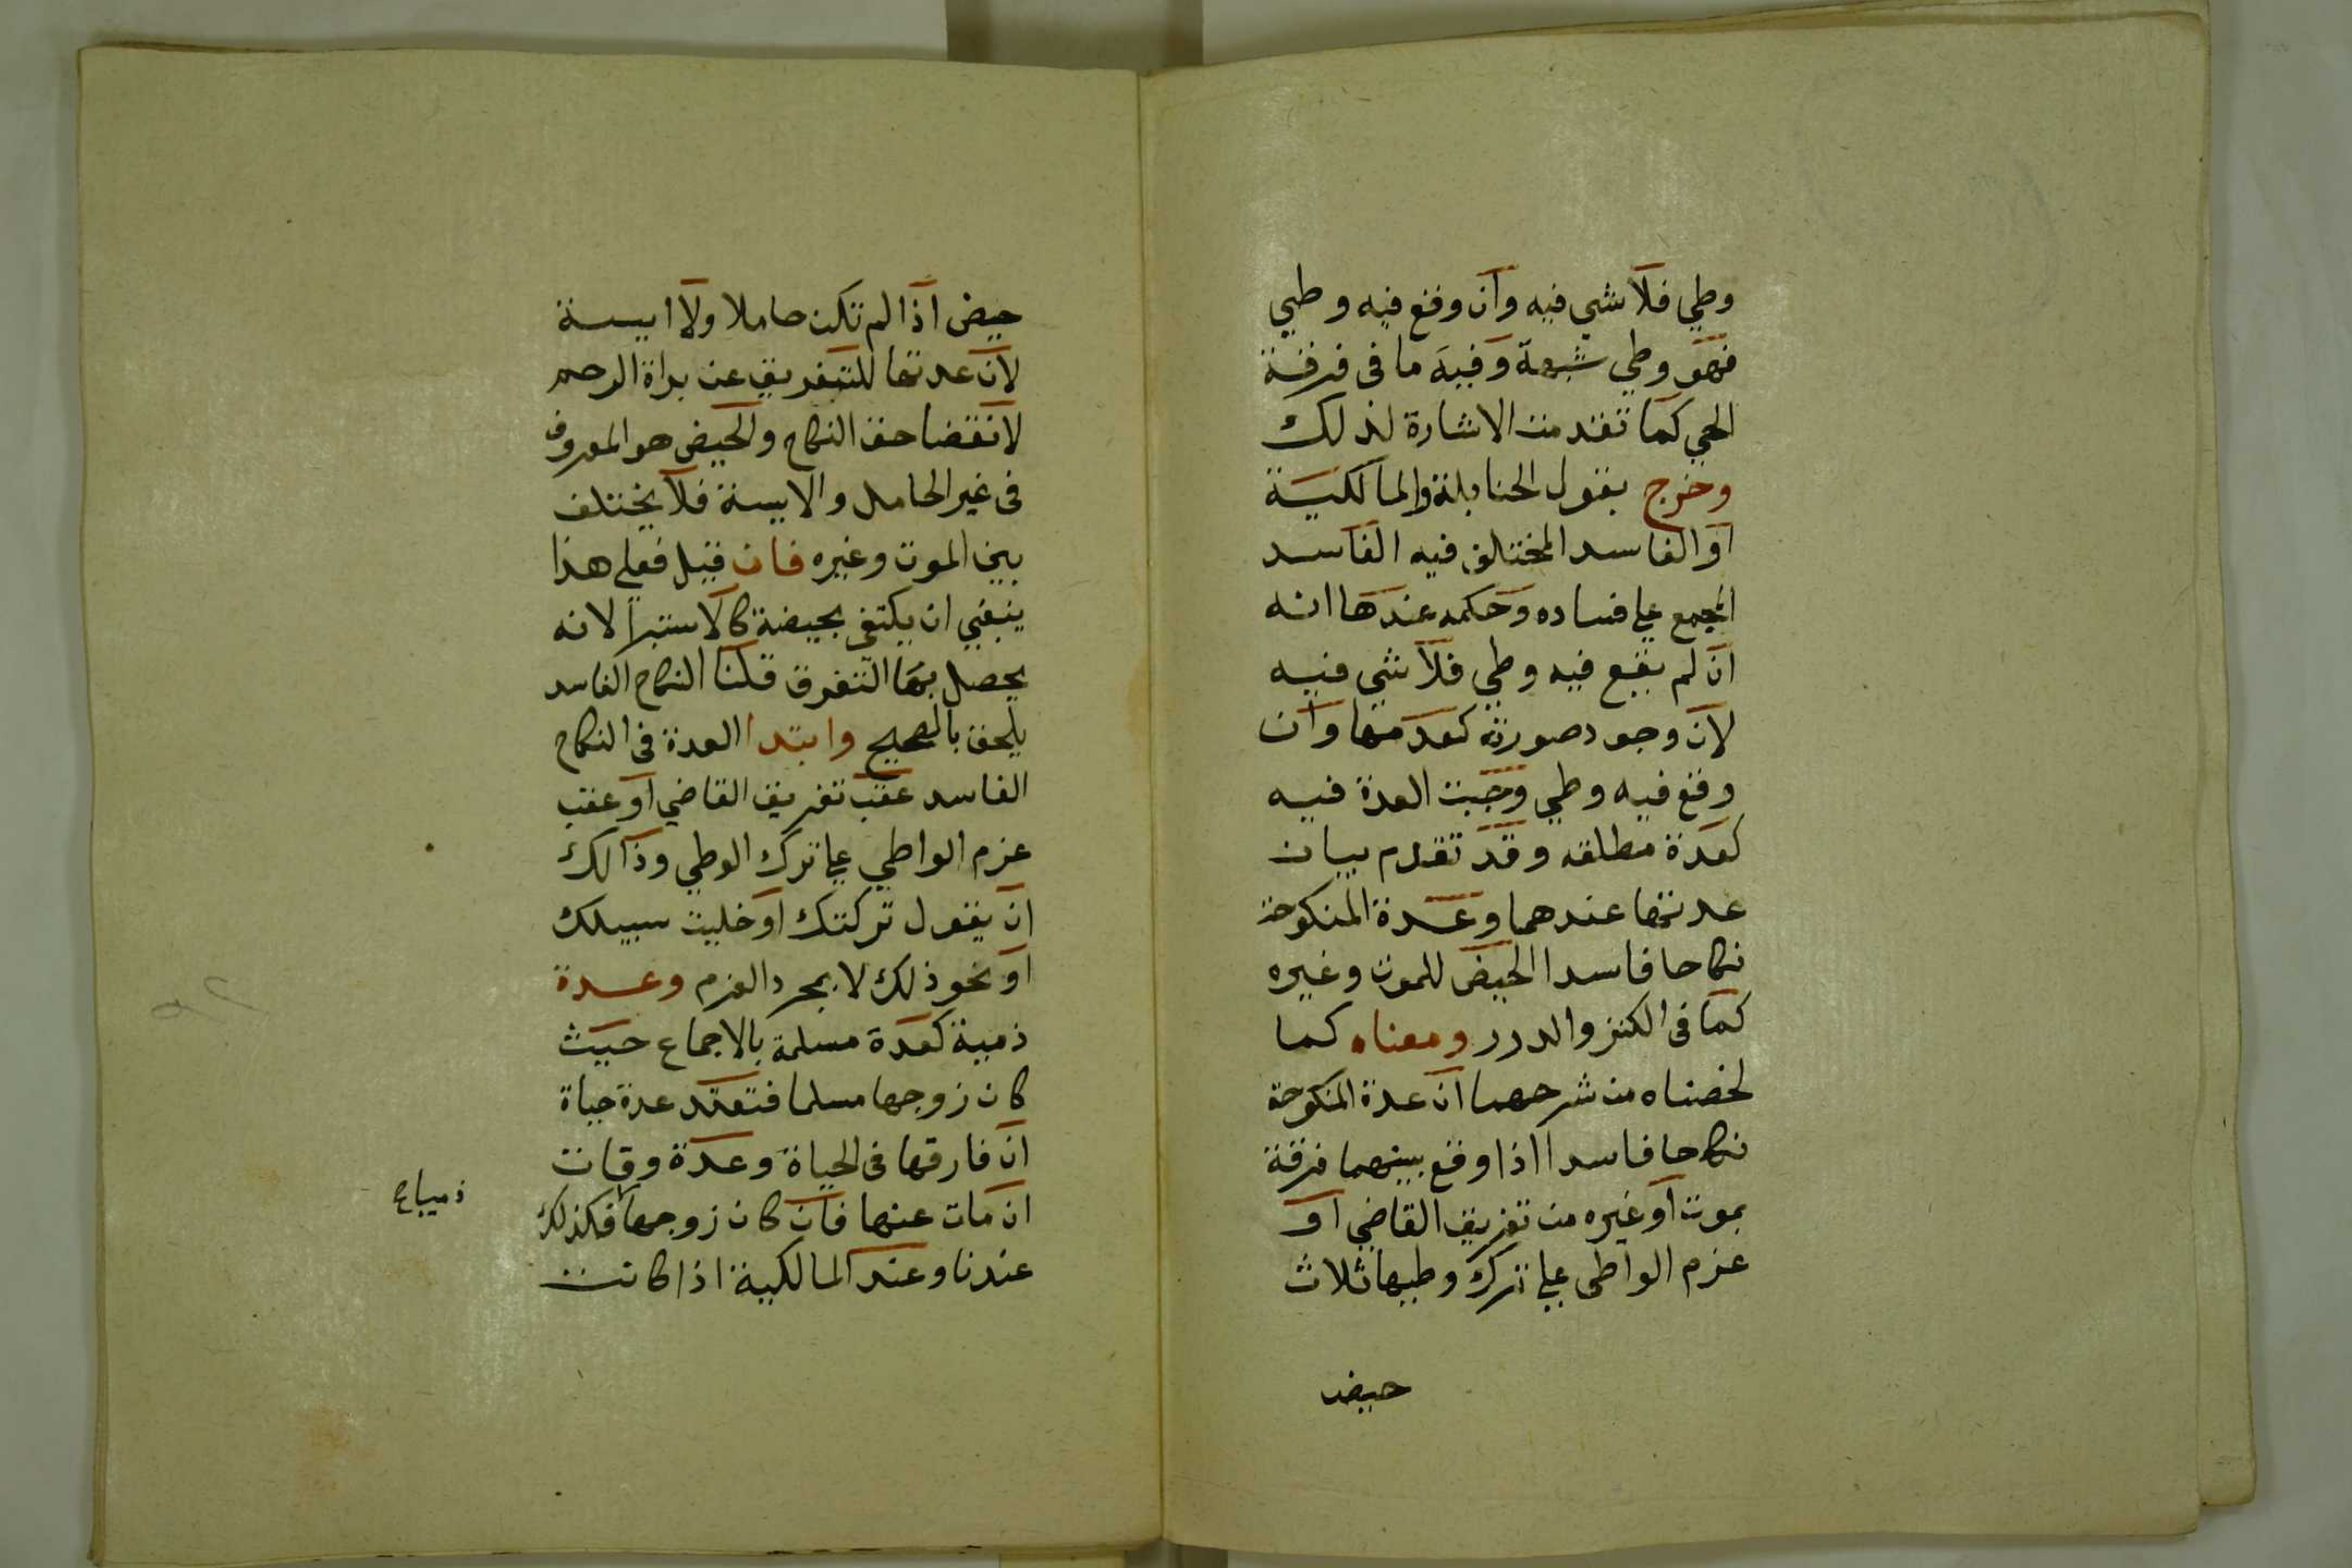 وطي فلا شي فيه وان وقع فيه وطي
فهو وطي شبهة وفيه ما فى فرقة
الحي كما تقدمت الاشارة لذلك
وخرج بقول الحنابلة والمالكية
او الفاسد المختلف فيه الفاسد
المجمع على فساده وحكمه عندها انه
ان لم يقع فيه وطي فلا شي فيه
لان وجود صورته كعدمها وان
وقع فيه وطي وجبت العدة فيه
كعدة مطلقه وقد تقدم بيان
عدتها عندهما وعدة المنكوحة
نكاحا فاسدا الحيض للموت وغيره
كما فى الكنز والدرر ومعناه كما
لخصناه من شرحهما ان عدة المنكوحة
نكاحا فاسدا اذا وقع بينهما فرقة
بموت او غيره من تفريق القاضي او
عزم الواطى على ترك وطيها ثلاث
حيض
حيض اذا لم تكن حاملا ولا ايسة
لان عدتها للتفريق عن براة الرحم
لا نقضا حق النكاح والحيض هو المعروف
فى غير الحامل والايسة فلا يختلف
بين الموت وغيره فان قيل فعلى هذا
ينبغي ان يكتفى بحيضة كالاستبرا لانه
يحصل بها التفرق قلنا النكاح الفاسد
يلحق بالصحيح وابتدا العدة فى النكاح
الفاسد عقب تفريق القاضي او عقب
عزم الواطي على ترك الوطي وذالك
ان يقول تركتك او خليت سبيلك
او نحو ذلك لا بمجرد العزم وعدة
ذمية كعدة مسلمة بالاجماع حيث
كان زوجها مسلما فتعتد عدة حياة
ان فارقها فى الحياة وعدة وفات
ان مات عنها فان كان زوجها فكذلك
ذميا
عندنا وعند المالكية اذا كانت